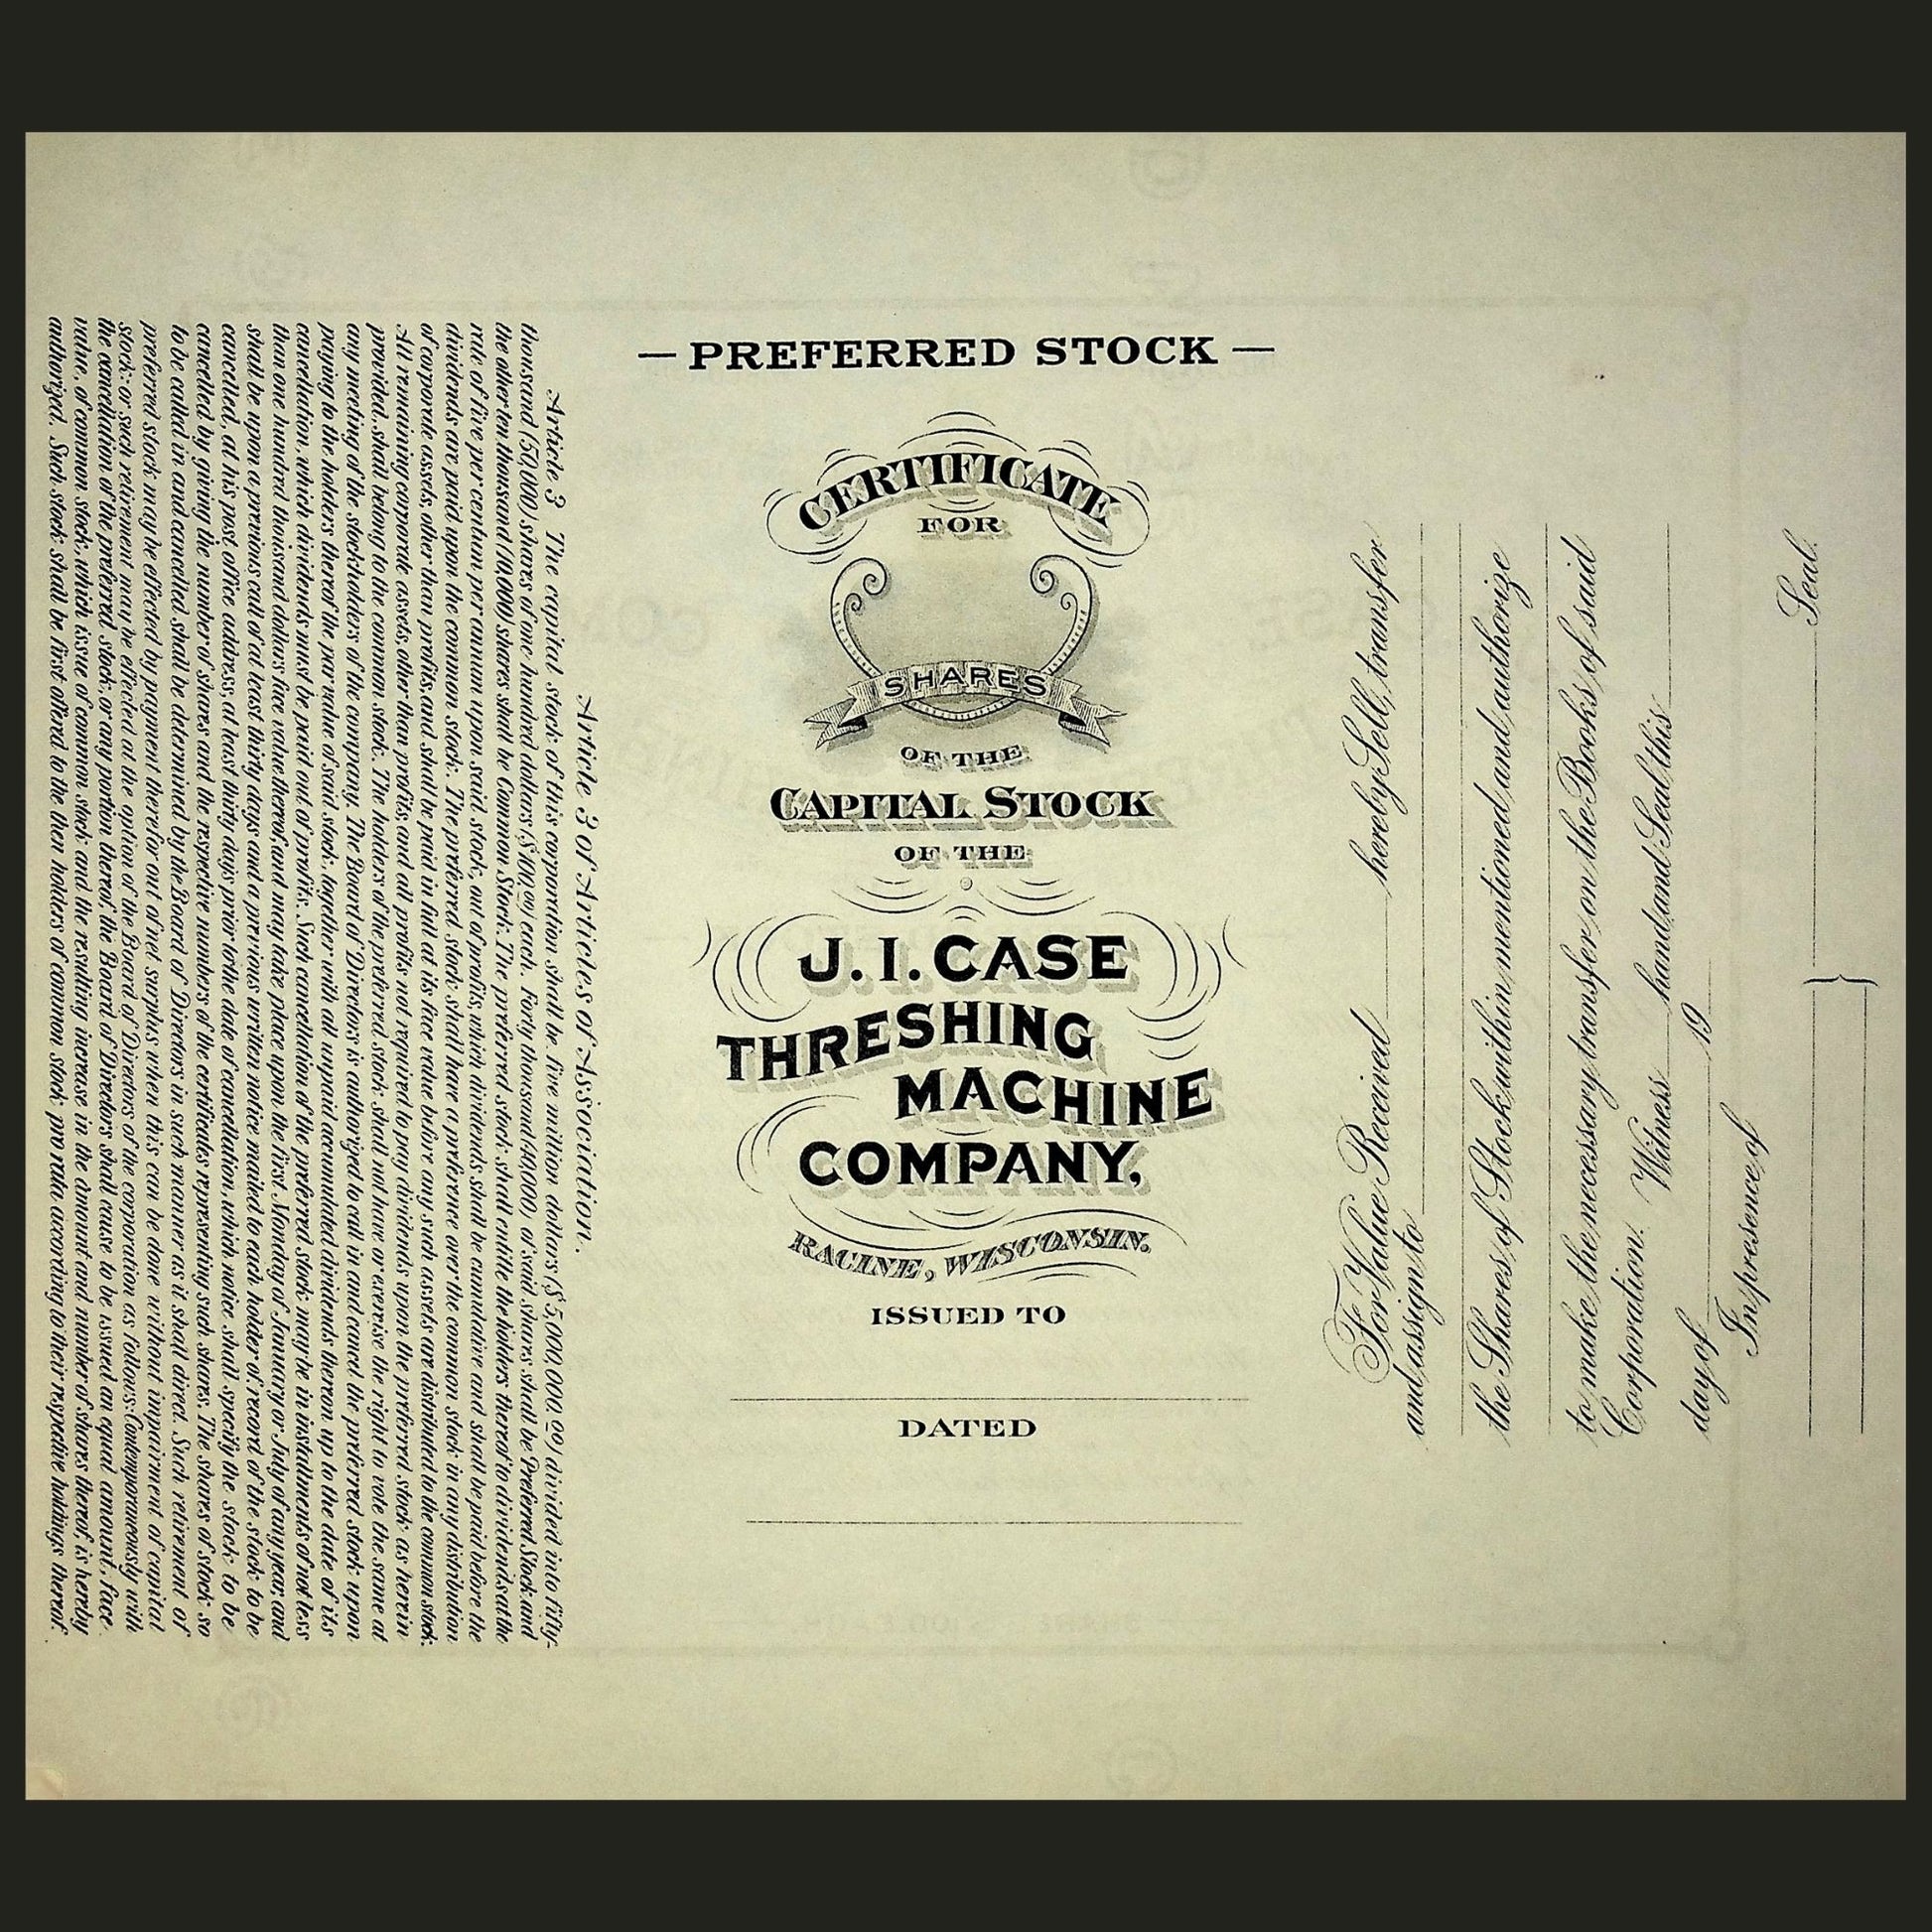 Article 3 of Articles of Association.
Article 3 The capital stock of this corporation shall be five million dollars ($5,000,000.00) divided into fifty-
thousand (50,000) shares of one hundred dollars ($100.00) each. Forty thousand (40,000) of said shares shall be Preferred Stock and
the other ten thousand (10,000) shares shall be Common Stock. The preferred stock shall entitle the holders thereof to dividends at the
rate of five per centum per annum upon said stock, out of profits, which dividends shall be cumulative and shall be paid before the
dividends are paid upon the common stock. The preferred stock shall have a preference over the common stock in any distribution
of corporate assets, other than profits, and shall be paid in full at its face value before any such assets are distributed to the common stock.
All remaining corporate assets, other than profits, and all profits not required to pay dividends upon the preferred stock as herein
provided, shall belong to the common stock. The holders of the preferred stock shall not have or exercise the right to vote the same at
any meeting of the stockholders of the company. The Board of Directors is authorized to call in and cancel the preferred stock upon
paying to the holders thereof the par value of said stock, together with all unpaid accumulated dividends thereon up to the date of its
cancellation, which dividends must be paid out of profits. Such cancellation of the preferred stock may be in installments of not less
than one hundred thousand dollars face value thereof, and may take place upon the first Monday of January or July of any year, and
shall be upon a previous call of at least thirty days and a previous written notice mailed to each holder of record of the stock to be
cancelled, at his post office address, at least thirty days prior to the date of cancellation, which notice shall specify the stock to be
cancelled by giving the number of shares and the respective numbers of the certificates representing such shares. The shares of stock so
to be called in and cancelled shall be determined by the Board of Directors in such manner as it shall direct. Such retirement of
preferred stock may be effected by payment therefor out of net surplus when this can be done without impairment of capital
stock: or such retirement may be effected at the option of the Board of Directors of the corporation as follows: Contemporaneously with
the cancellation of the preferred stock, or any portion thereof, the Board of Directors shall cause to be issued an equal amount, face
value, of common stock, which issue of common stock and the resulting increase in the amount and number of shares thereof, is hereby
authorized. Such stock shall be first offered to the then holders of common stock pro rata according to their respective holdings thereof.
— PREFERRED STOCK —
CERTIFICATE
FOR
SHARES
OF THE
CAPITAL STOCK
OF THE
J. I. CASE
THRESHING
MACHINE
COMPANY,
RACINE, WISCONSIN.
ISSUED TO
DATED
For Value Received hereby Sell, transfer
and assign to
the Shares of Stock within mentioned and authorize
to make the necessary transfer on the Books of said
Corporation. Witness hand and Seal this
day of 19
In presence of
Seal.